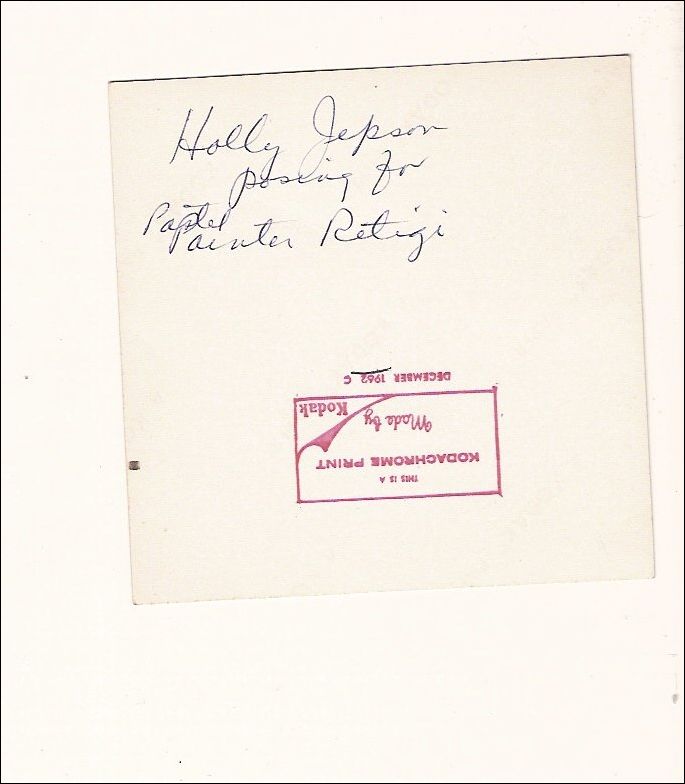 Holly Jepson
posing for
Paptel
Painter Retigi
DECEMBER 1962 C
Made by Kodak
KODACHROME PRINT
THIS IS A